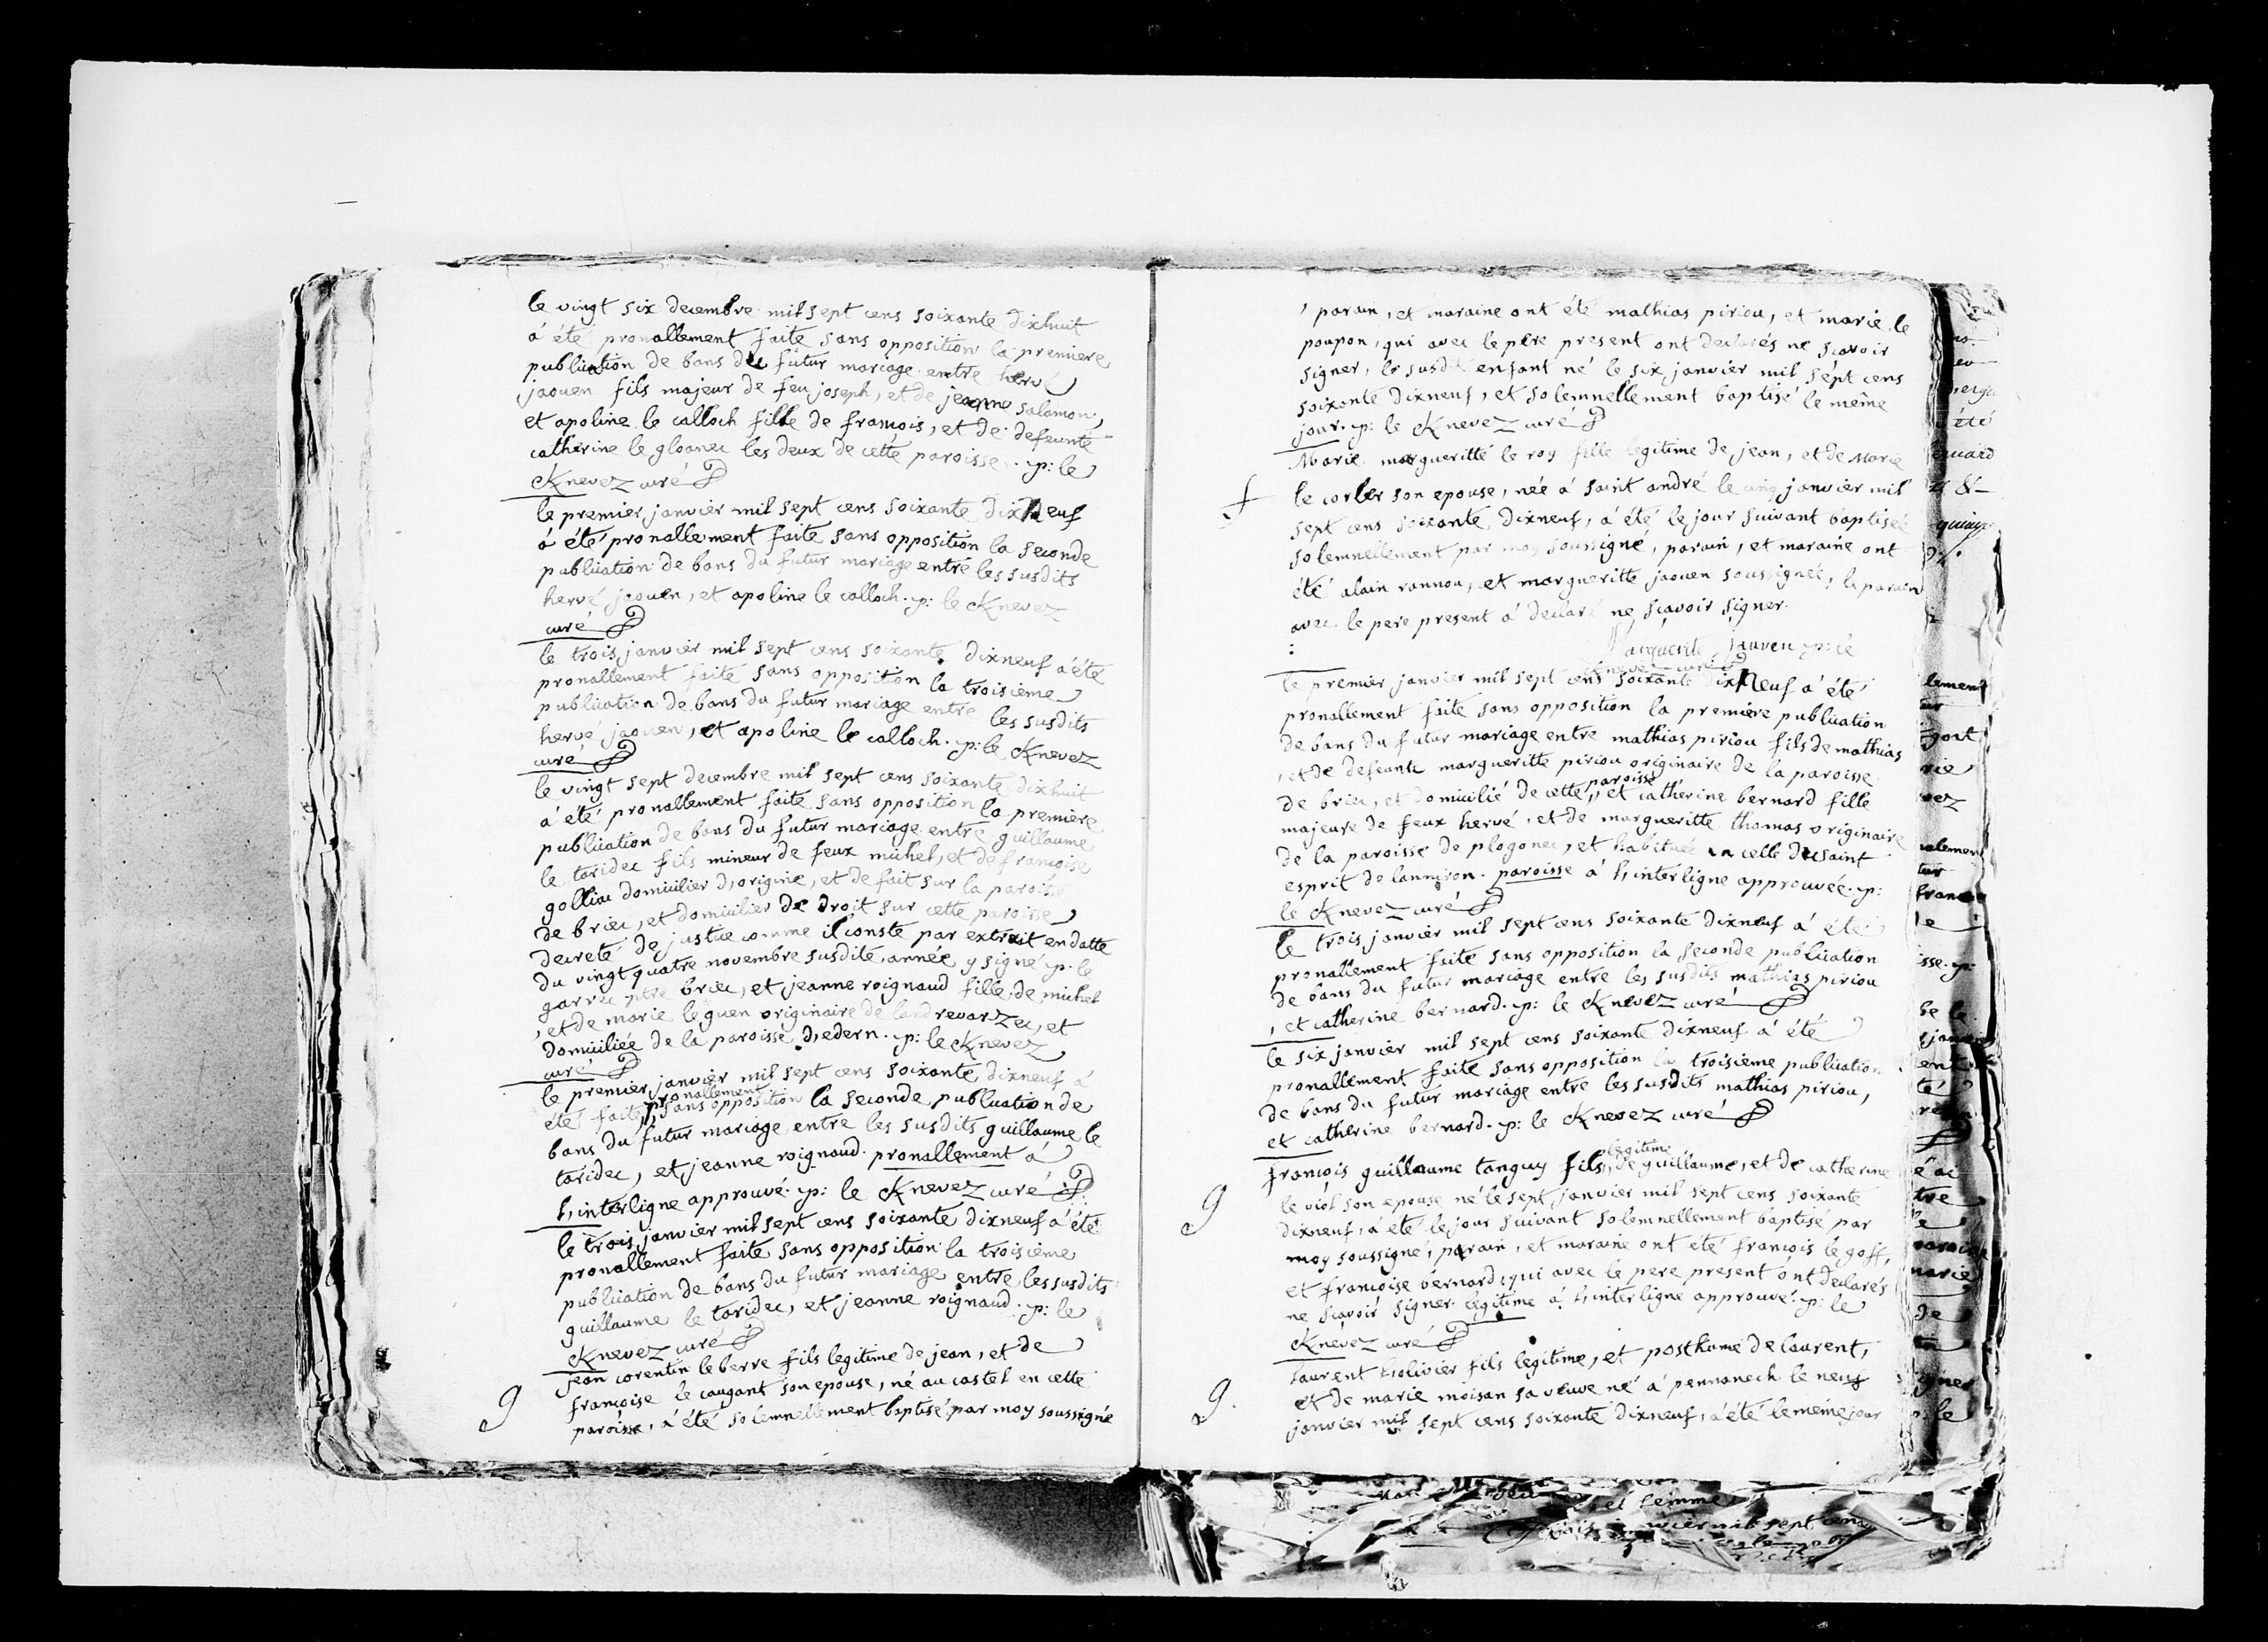 le vingt six decembre mil sept cens soixante dixhuit
á été pronallement faite sans opposition la premiere
publication de bans du futur mariage entre hervé
jaouen fils majeur de feu joseph, et de jeanne salamon,
et apoline le calloch fille de françois, et de defeunte
catherine le gloanec les deux de cette paroisse. p: le
Knevez curé
le premier janvier mil sept cens soixante dixneuf
á été pronallement faite sans opposition la seconde
publication de bans du futur mariage entre les susdits
hervé jaouen, et apoline le calloch. p: le Knevez
curé
le trois janvier mil sept cens soixante dixneuf á été
pronallement faite sans opposition la troisième
publication de bans du futur mariage entre les susdits
hervé jaouen, et apoline le calloch. p: le Knevez
curé
le vingt sept decembre mil sept cens soixante dixhuit
á été pronallement faite sans opposition la premiere
publication de bans du futur mariage entre guillaume
le taridec fils mineur de feux michel, et de françoise
golliou domicilier d'origine, et de fait sur la paroisse
de briec, et domicilier de droit sur cette paroisse
decreté de justice comme il conste par extrait en datte
du vingt quatre novembre susdite année y signé p. le
garrec ptre briec, et jeanne roignaud fille de michel
, et de marie le guen originaire de landrevarzec, et
domiciliée de la paroisse d'edern. p: le Knevez
curé
le premier janvier mil sept cens soixante dixneuf á
pronallement
été faite sans opposition la seconde publication de
bans du futur mariage entre les susdits guillaume le
taridec, et jeanne roignaud. pronallement á
l'interligne approuvé. p: le Knevez curé
le trois janvier mil sept cens soixante dixneuf á été
pronallement faite sans opposition la troisième
publication de bans du futur mariage entre les susdits
guillaume le taridec, et jeanne roignaud. p: le
Knevez curé
jean corentin le berre fils legitime de jean, et de
g françoise le caugant son epouse, né au castel en cette
paroisse, á été solemnellement baptisé par moy soussigné
, parain, et maraine ont été mathias piriou, et marie le
poupon, qui avec le pere present ont declarés ne scavoir
signer, le susdit enfant né le six janvier mil sépt cens
soixante dixneuf, et solemnellement baptisé le même
jour. p: le Knevez curé
Marie margueritte le roy fille legitime de jean, et de Marie
f le corler son epouse, née á saint andré le cinq janvier mil
sept cens soixante dixneuf, á été le jour suivant baptisée
solemnellement par moy soussigné, parain, et maraine ont
été alain rannou, et margueritte jaouen soussignée, le parain
avec le pere present á declaré ne scavoir signer.
Marguerite Jauven p: le
Knevez curé
le premier janvier mil sept cens soixante dixneuf á été
pronallement faite sans opposition la premiere publication
de bans du futur mariage entre mathias piriou fils de mathias
, et de defeunte margueritte piriou originaire de la paroisse
paroisse
de briec, et domicilié de cette, et catherine bernard fille
majeure de feux hervé, et de margueritte thomas originaire
de la paroisse de plogonec, et habituée en celle du saint
esprit de lanniron. paroisse á l'interligne approuvée. p:
le Knevez curé
le trois janvier mil sept cens soixante dixneuf á été
pronallement faite sans opposition la seconde publication
de bans du futur mariage entre les susdits mathias piriou
, et catherine bernard. p: le Knevez curé
le six janvier mil sept cens soixante dixneuf á été
pronallement faite sans opposition la troisième publication
de bans du futur mariage entre les susdits mathias piriou,
et catherine bernard. p: le Knevez curé
legitime
françois guillaume tanguy fils de guillaume, et de catherine
g le viol son epouse né le sept janvier mil sept cens soixante
dixneuf, á été le jour suivant solemnellement baptisé par
moy soussigné, parain, et maraine ont été françois le goff,
et françoise bernard, qui avec le pere present ont declarés
ne scavoir signer. legitime á l'interligne approuvé. p: le
Knevez curé
laurent l'olivier fils legitime, et posthume de laurent,
g. et de marie moisan sa veuve né á pennanech le neuf
janvier mil sept cens soixante dixneuf, á été le meme jour